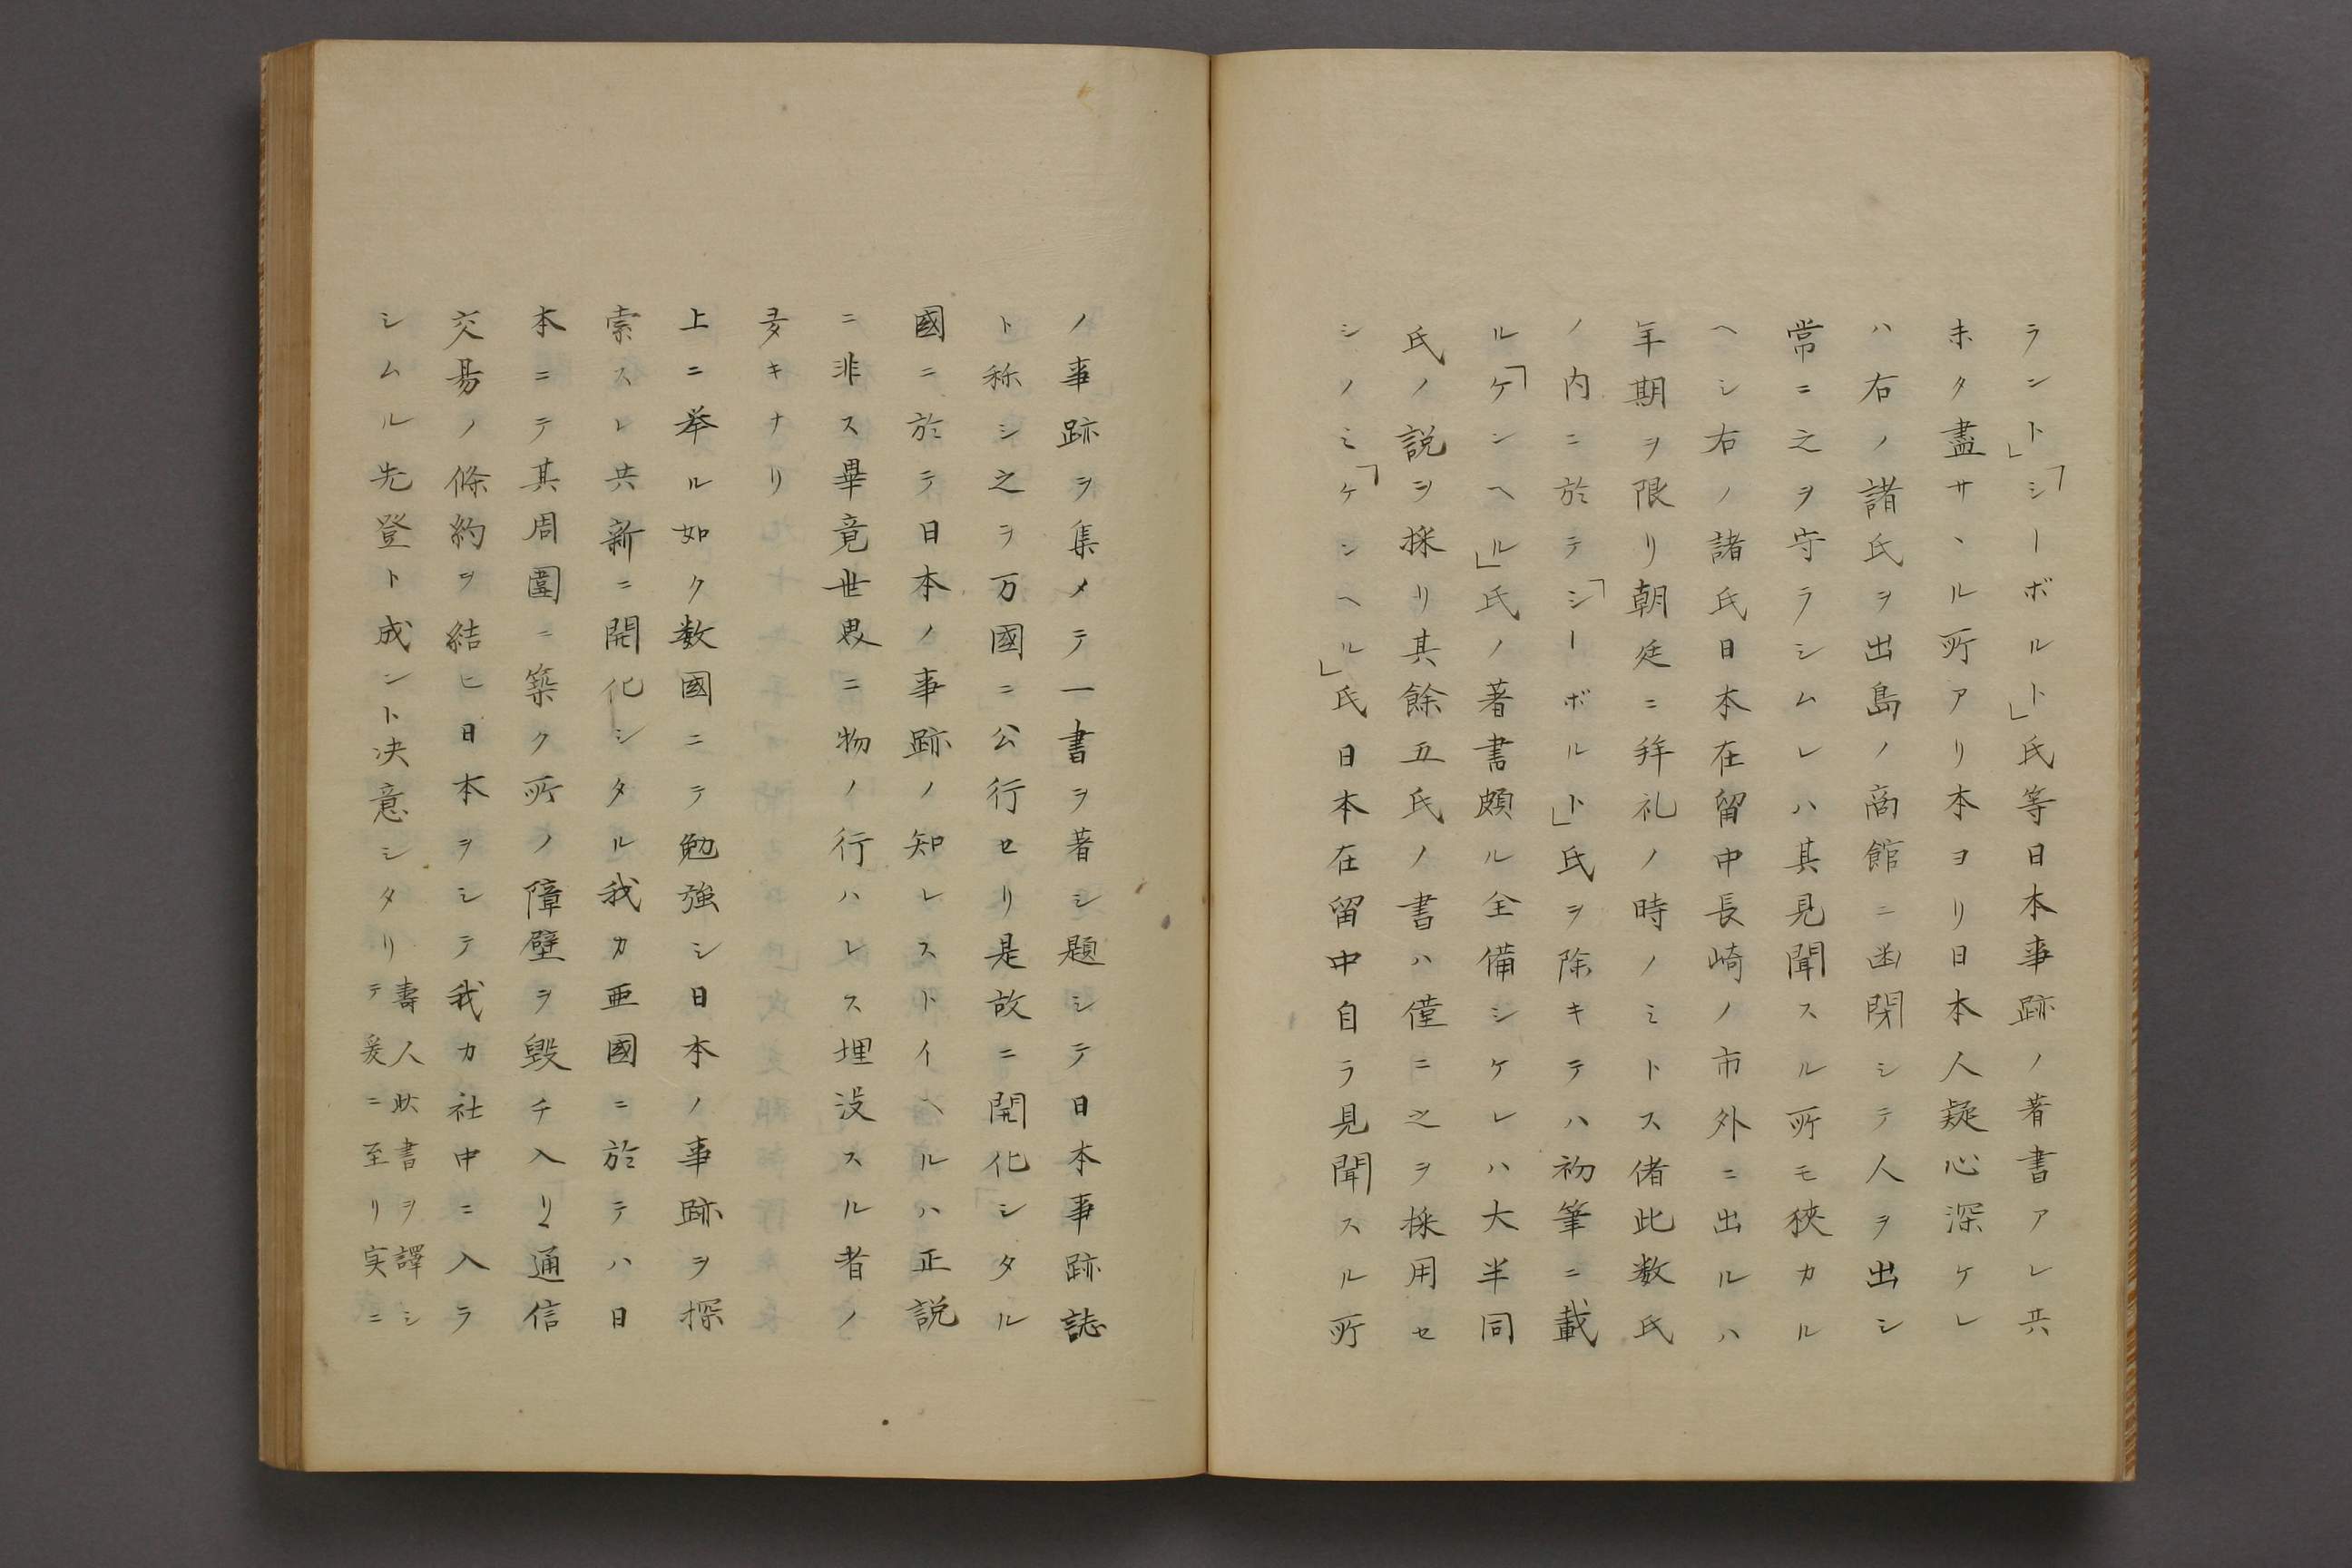 ラント」「シーボルト」氏等日本事跡ノ著書アレ共
未タ盡サヽル所アリ本ヨリ日本人疑心深ケレ
ハ右ノ諸氏ヲ出島ノ商館ニ凾閉シテ人ヲ出シ
常ニ之ヲ守ラシムレハ其見聞スル所モ狹カル
ヘシ右ノ諸氏日本在留中長崎ノ市外ニ出ルハ
年期ヲ限リ朝廷ニ拜礼ノ時ノミトス偖此数氏
ノ内ニ於テ「シーボルト」氏ヲ除キテハ初筆ニ載
ル「ケンヘル」氏ノ著書頗ル全備シケレハ大半同
氏ノ説ヲ採リ其餘五氏ノ書ハ僅ニ之ヲ採用セ
シノミ「ケンヘル」氏日本在留中自ラ見聞スル所
ノ事跡ヲ集メテ一書ヲ著シ題シテ日本事跡誌
ト称シ之ヲ万國ニ公行セリ是故ニ開化シタル
國ニ於テ日本ノ事跡ノ知レストイヘルハ正説
ニ非ス畢竟世界ニ物ノ行ハレス埋没スル者ノ
多キナリ
上ニ举ル如ク数國ニテ勉強シ日本ノ事跡ヲ探
索スレ共新ニ開化シタル我カ亜國ニ於テハ日
本ニテ其周圍ニ築ク所ノ障壁ヲ毀チ入リ通信
交易ノ條約ヲ結ヒ日本ヲシテ我カ社中ニ入ラ
シムル先登ト成ント决意シタリ
壽人此書ヲ譯シ
テ爰ニ至リ実ニ